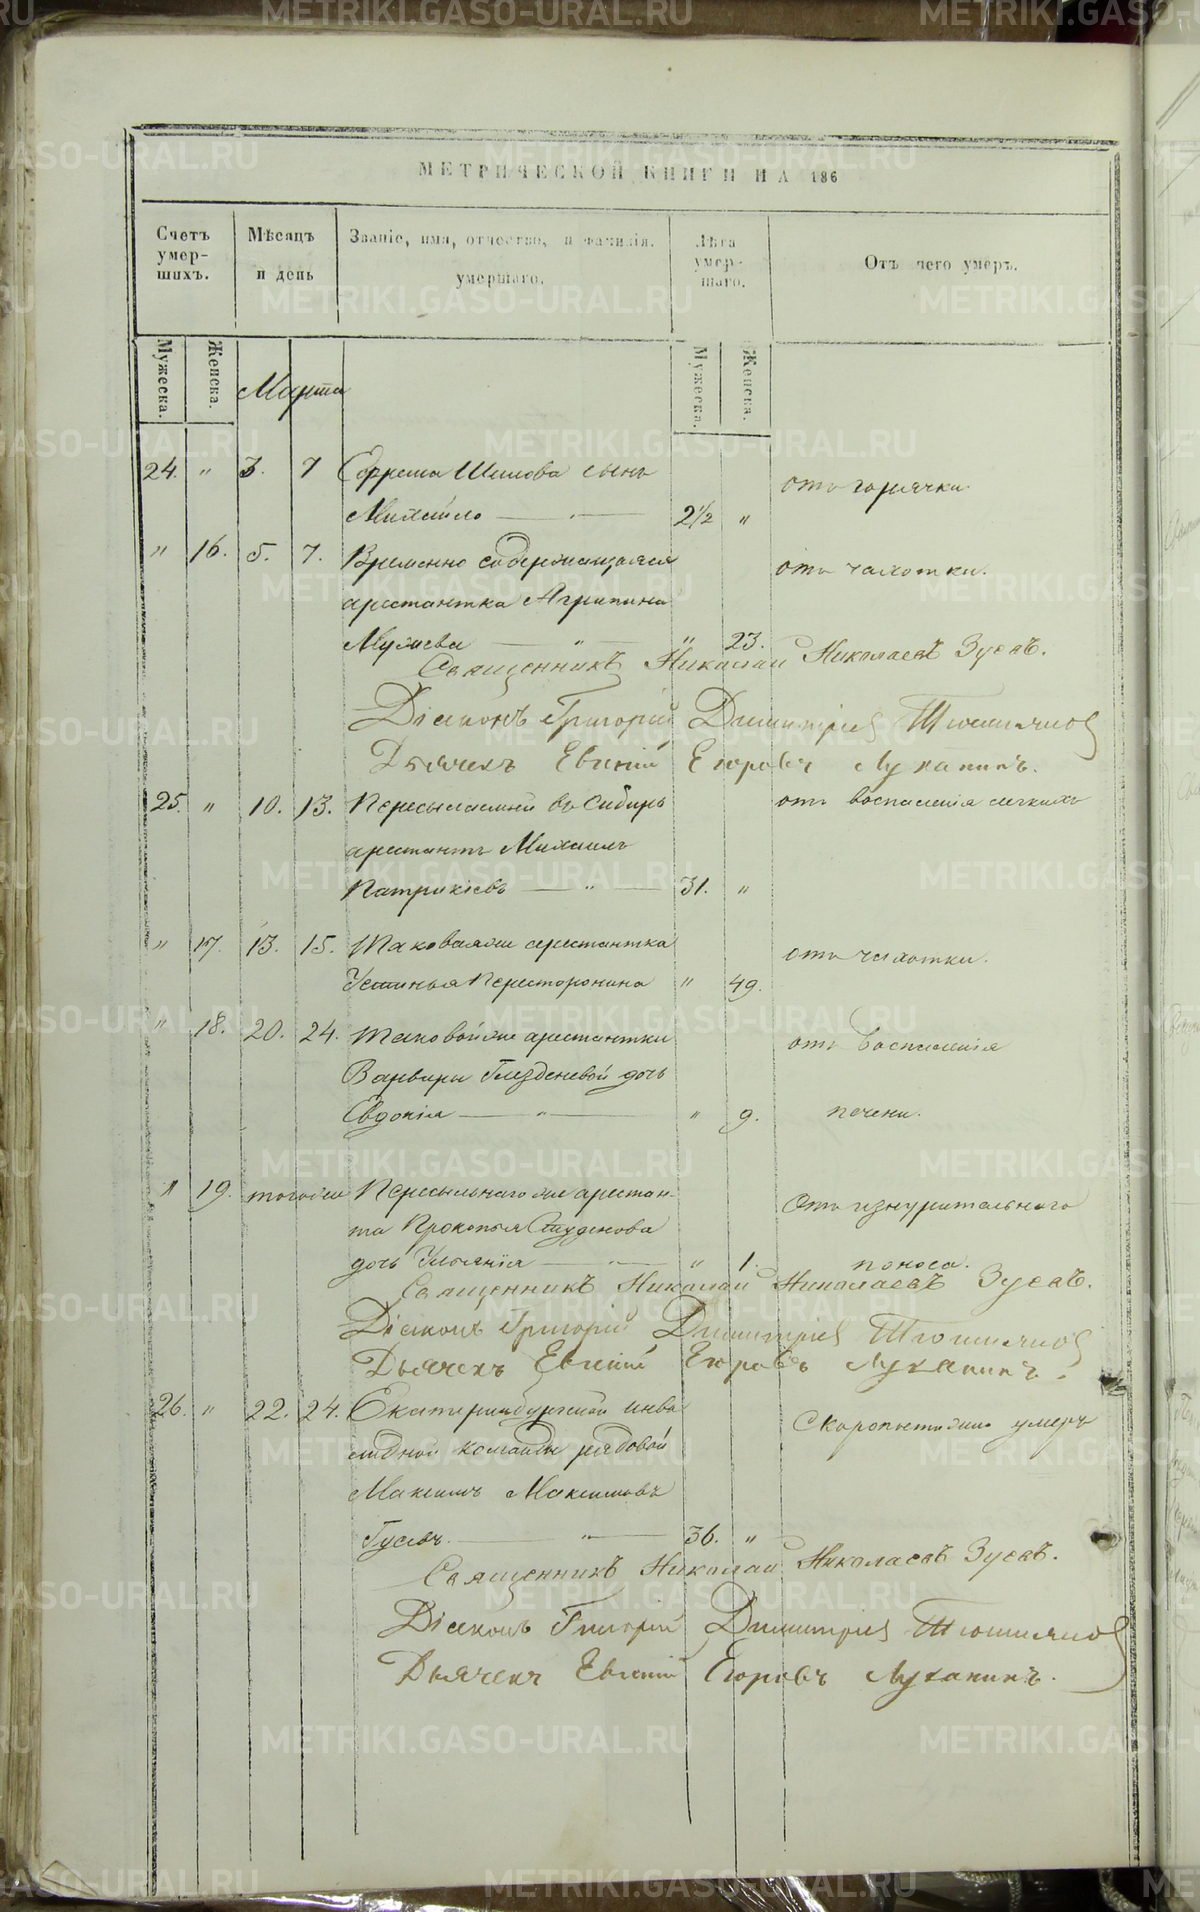 МЕТРИЧЕСКОЙ КНИГИ НА 186
Счетъ умер-шихъ.
Мѣсяцъ и день
Званіе, имя, отчество, и фамилія умершаго.
Лѣта умер-шаго.
Отъ чего умеръ.
Мужеска. Женска. Мужеска. Женска.
Марта
24. " 3. 7 Ефрема Шилова сынъ отъ горячки.
Михаило — " — 2½ "
" 16. 5. 7. Временно содержащаяся отъ чахотки.
арестантка Агрипина
— " — " 23.
Священникъ Николай Николаевъ Зуевъ.
Діаконъ Григорій Димитріев
Дьячекъ Евгеній Егоровъ Луканинъ.
25. " 10. 13. Пересылаемый въ Сибирь отъ воспаленія легкихъ
арестантъ Михаилъ
Патрикіевъ — " — 31. "
" 17. 13. 15. Таковаяже арестантка отъ чахотки.
Устинья Пересторонина " 49.
" 18. 20. 24. Таковойже арестантки отъ воспаленія
Варвары Глезденевой дочь
Евдокія — " — " 9. печени.
" 19. тогоже Пересыльнаго же арестан- Отъ изнурительнаго
та Прокопья Студенова
дочь Уліянія — " — " 1. поноса.
Священникъ Николай Николаевъ Зуевъ.
Діаконъ Григорій Димитріев
Дьячекъ Евгеній Егоровъ Луканинъ.
26. " 22. 24. Екатеринбургской инва- Скоропостижно умеръ
лидной команды рядовой
Максимъ Максимовъ
Гусевъ. — " — 36. "
Священникъ Николай Николаевъ Зуевъ.
Діаконъ Григорій Димитріев
Дьячекъ Евгеній Егоровъ Луканинъ.
METRIKI.GASO-URAL.RU